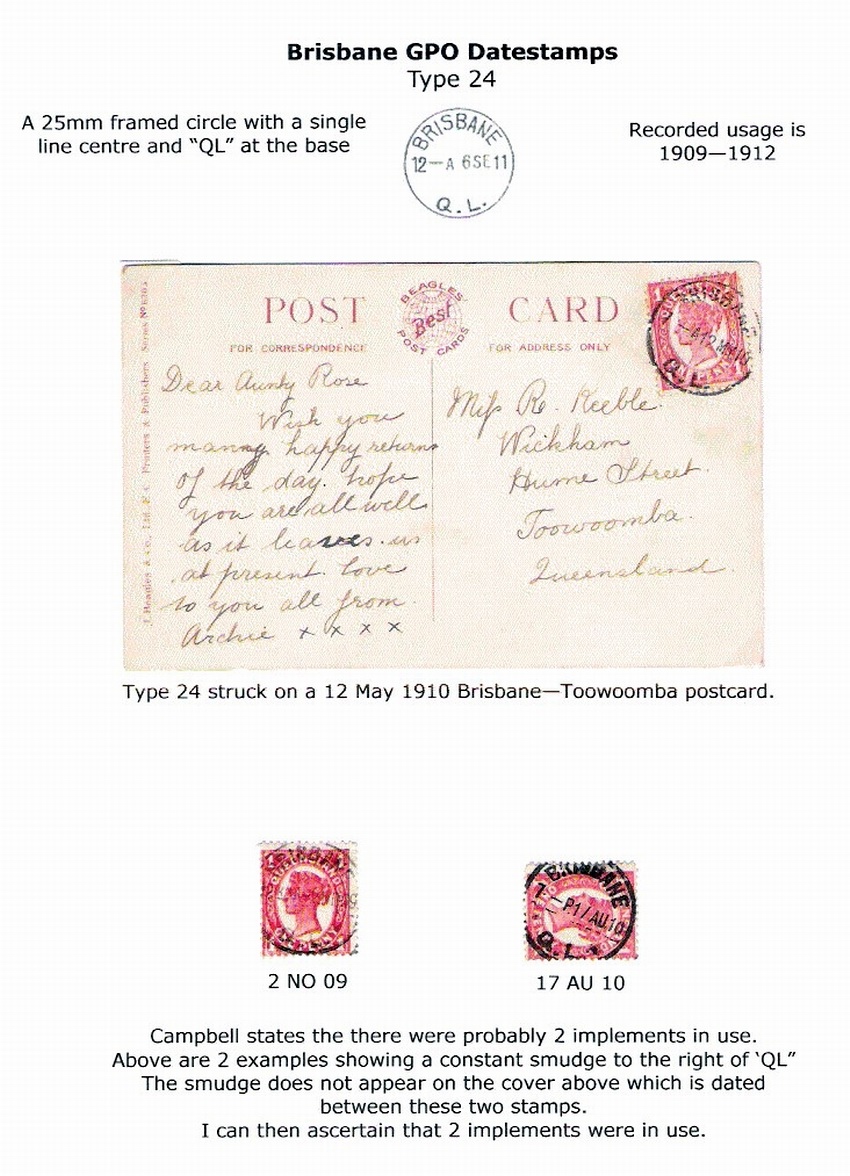 Brisbane GPO Datestamps
Type 24
A 25mm framed circle with a single
line centre and “QL” at the base
BRISBANE
12—A 6SE11
Q.L.
Recorded usage is
1909—1912
J. Beagles & Co., Ltd. E.C. Printers & Publishers Series No
POST
BEAGLES
Best
POST CARDS
CARD
FOR CORRESPONDENCE
FOR ADDRESS ONLY
Dear Aunty Rose
Wish you
manny happy returns
of the day. hope
you are all well
as it leaves us
at present. love
to you all from
Archie x x x x
Miss R. Keeble.
Wickham
Hume Street.
Toowoomba.
Queensland.
Q.L.
Type 24 struck on a 12 May 1910 Brisbane—Toowoomba postcard.
BRISBANE
P17AU10
Q.L.
2 NO 09
17 AU 10
Campbell states the there were probably 2 implements in use.
Above are 2 examples showing a constant smudge to the right of ‘QL”
The smudge does not appear on the cover above which is dated
between these two stamps.
I can then ascertain that 2 implements were in use.